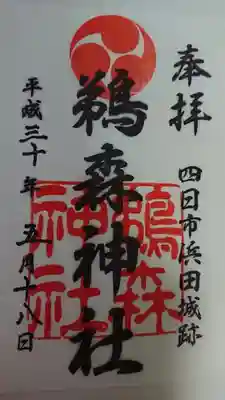 奉拝
四日市浜田城跡
鵜森神社
鵜森
神社
平成三十年五月十八日